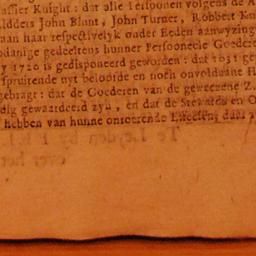 Knight: dat alle Persoonen volgens de A
Ridders John Blunt, John Turner, Robbert Kn
aan haar respectivelyk onder Eeden aanwyzing
odanige gedeeltens hunner Persoonele Goedere
y 1720 is gedisponeerd geworden: dat 1031 ge
spruitende uyt beloofde en noch onvoldaane H
gebragt: dat de Goederen van de geweezene Z
dig gewaardeerd zyn, en dat de Stewards en O
hebben van hunne onroerende Effecten, daar